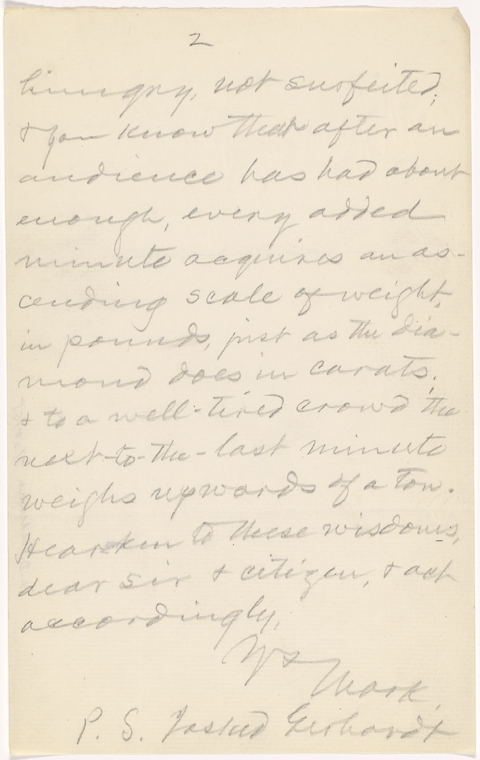 2
hungry, not surfeited;
& you know that after an
audience has had about
enough, every added
minute acquires an as-
cending scale of weight,
in pounds, just as the dia-
mond does in carats;
& to a well-tired crowd the
next-to-the-last minute
weighs upwards of a ton.
Hearken to these wisdoms,
dear sir & citizen, & act
accordingly,
Ys
Mark.
P. S. Gerhardt